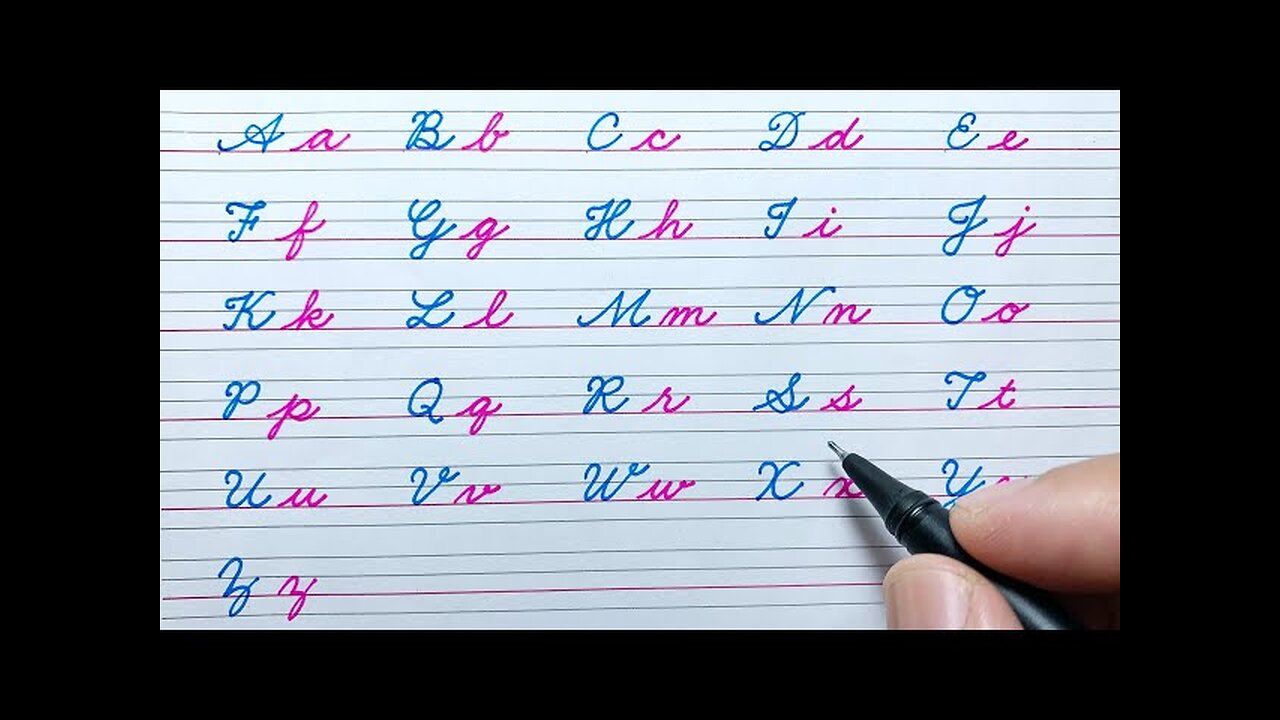 A a B b C c D d E e
F f G g H h I i J j
K k L l M m N n O o
P p Q q R r S s T t
U u V v W w X x Y
Z z